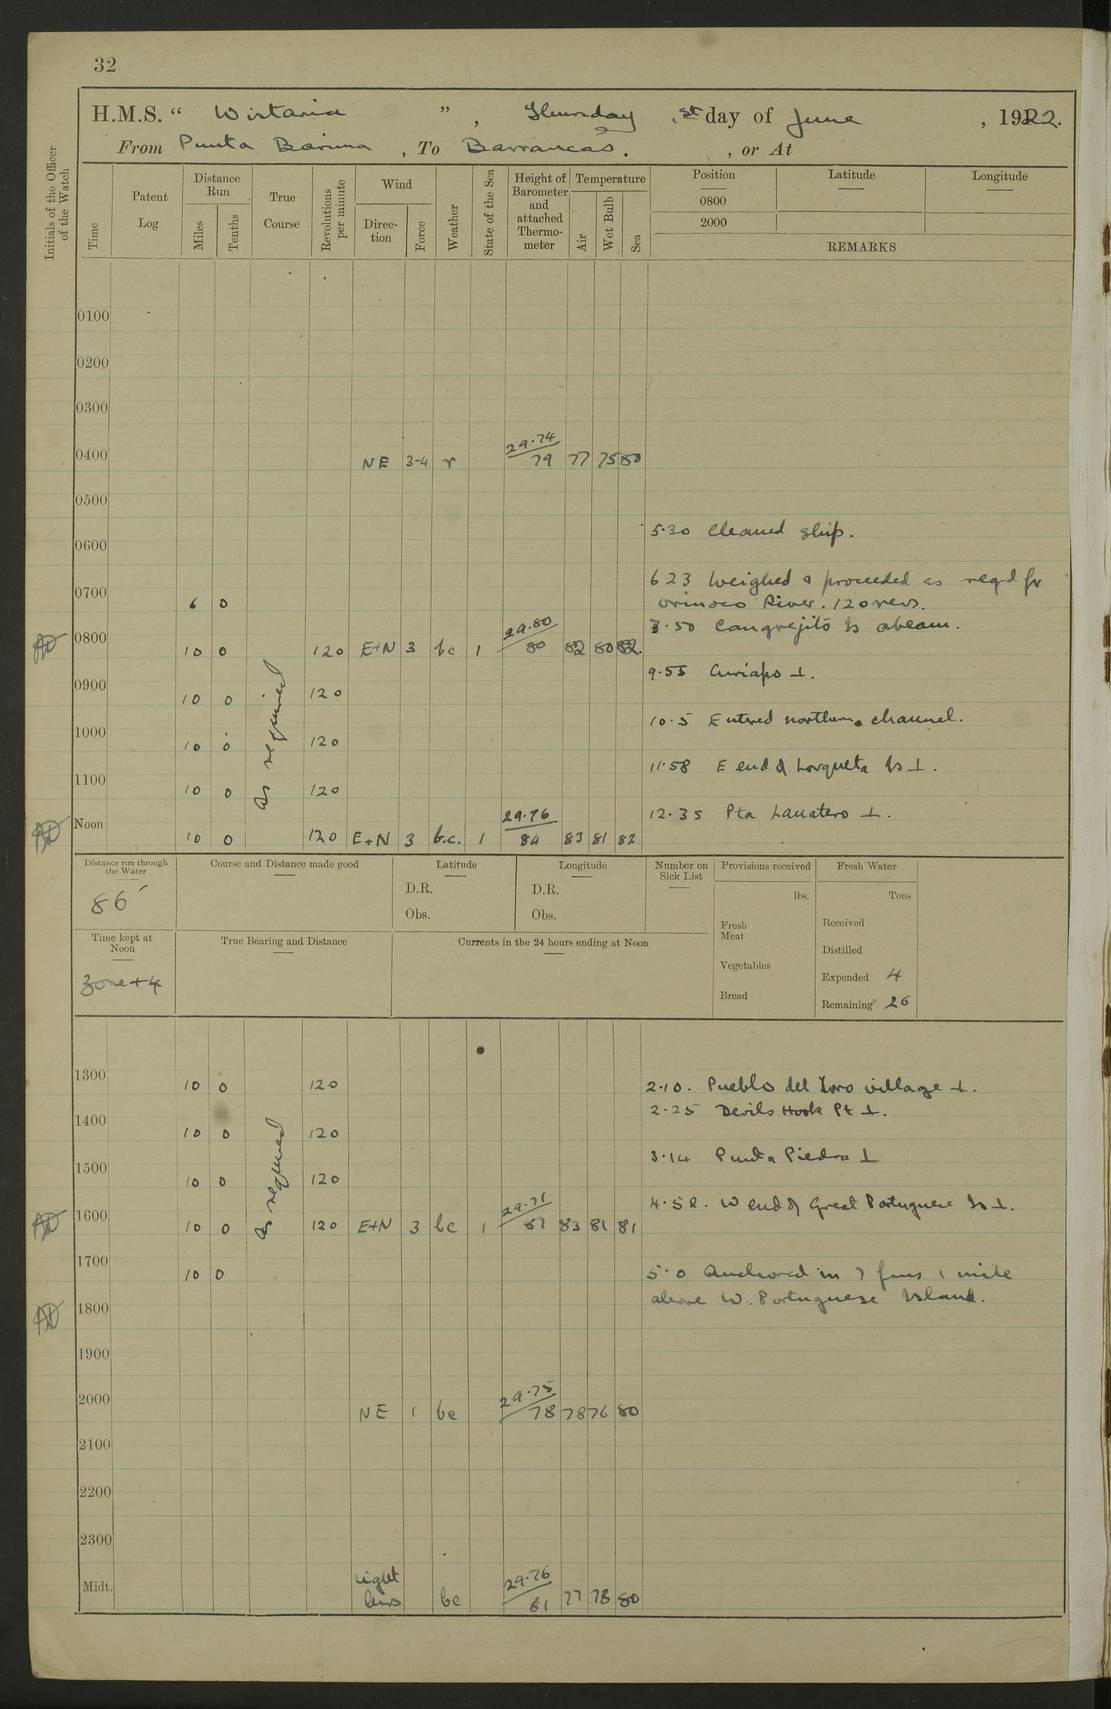 32
H.M.S. “ Wistaria ” , Thursday , 1st day of June , 1922.
From Punta Barima , To Barrancas. , or At
Initials of the Officer of the Watch
Time
Patent Log
Distance Run
Miles
Tenths
True Course
Revolutions per minute
Wind
Direction
Force
Weather
State of the Sea
Height of Barometer and attached Thermometer
Temperature
Air
Wet Bulb
Sea
Position Latitude Longitude
0800
2000
REMARKS
0100
0200
0300
29.74
0400 NE 3-4 r 79 77 75 80
0500
5.30 Cleaned ship.
0600
6 23 Weighed & proceeded as reqd for
0700 6 0 Orinoco River. 120 revs.
29.80
7.50 Cangrejito Is abeam.
0800 10 0 120 E+N 3 bc 1 80 82 80 82.
9.55 Curiapo ⊥.
0900 10 0 120
10.5 Entered northern channel.
1000 10 0 120
As required
11.58 E end of Lorqueta Is ⊥.
1100 10 0 120
29.76
12.35 Pta Lauatero ⊥.
Noon 10 0 120 E+N 3 b.c. 1 84 83 81 82
Distance run through the Water
86
Course and Distance made good
Latitude
D.R.
Obs.
Longitude
D.R.
Obs.
Number on Sick List
Provisions received
lbs.
Fresh Meat
Vegetables
Bread
Fresh Water
Tons
Received
Distilled
Expended 4
Remaining 26
Time kept at Noon
Zone +4
True Bearing and Distance
Currents in the 24 hours ending at Noon
1300 10 0 120 2.10. Pueblo del Toro village ⊥.
2.25 Devils Hook Pt ⊥.
1400 10 0 120
3.14 Punta Piedra ⊥
1500 10 0 120
As required
29.71
4.52. W end of Great Portuguese Is ⊥.
1600 10 0 120 E+N 3 bc 1 81 83 81 81
1700 10 0 5.0 Anchored in 7 fms 1 mile
above W. Portuguese Island.
1800
1900
29.75
2000 NE 1 bc 78 78 76 80
2100
2200
2300
29.76
Midt. Light airs bc 81 77 78 80